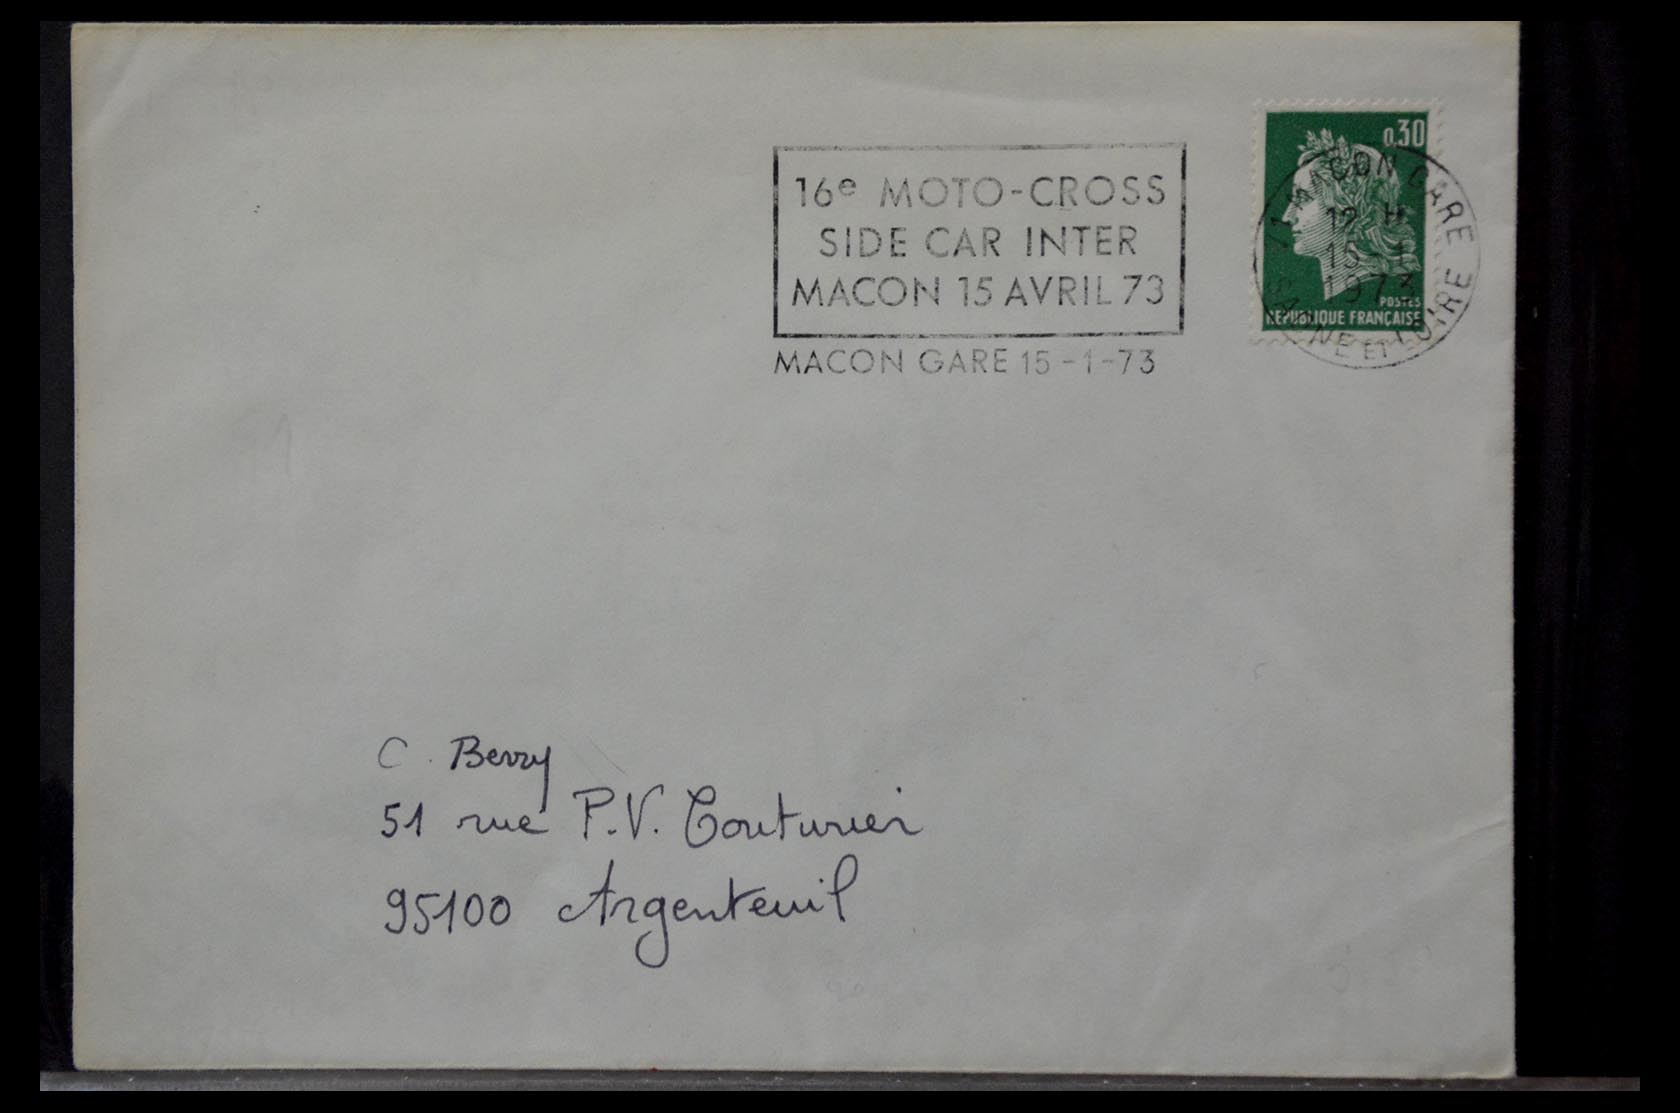 16e MOTO-CROSS
SIDE CAR INTER
MACON 15 AVRIL 73
MACON GARE 15-1-73
0,30
POSTES
REPUBLIQUE FRANÇAISE
71 MACON GARE
12 H
15-1
1973
SAONE ET LOIRE
C. Berry
51 rue P.V. Couturier
95100 Argenteuil